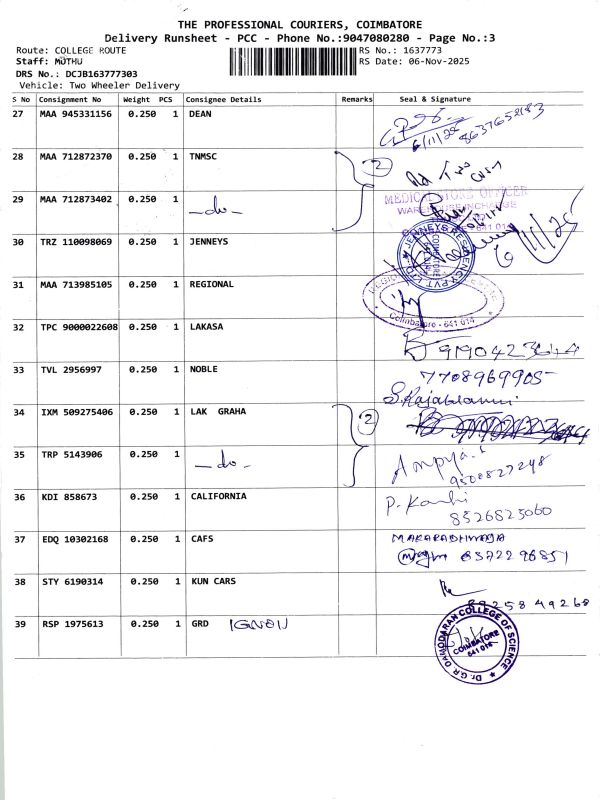 THE PROFESSIONAL COURIERS, COIMBATORE
Delivery Runsheet - PCC - Phone No.:9047080280 - Page No.:3
Route: COLLEGE ROUTE RS No.: 1637773
Staff: MUTHU RS Date: 06-Nov-2025
DRS No.: DCJB163777303
Vehicle: Two Wheeler Delivery
S No Consignment No Weight PCS Consignee Details Remarks Seal & Signature
27 MAA 945331156 0.250 1 DEAN
6/11/25 8637652183
28 MAA 712872370 0.250 1 TNMSC 2
29 MAA 712873402 0.250 1 -do-
MEDICAL STORE OFFICER
WAREHOUSE INCHARGE
30 TRZ 110098069 0.250 1 JENNEYS
6/11/25
31 MAA 713985105 0.250 1 REGIONAL
Coimbatore - 641 014
32 TPC 9000022608 0.250 1 LAKASA
9190423644
33 TVL 2956997 0.250 1 NOBLE 7708969905
34 IXM 509275406 0.250 1 LAK GRAHA 2
35 TRP 5143906 0.250 1 -do-
9508827248
36 KDI 858673 0.250 1 CALIFORNIA
8526825060
37 EDQ 10302168 0.250 1 CAFS MAKARADHWAJA
6372296851
38 STY 6190314 0.250 1 KUN CARS
39 RSP 1975613 0.250 1 GRD IGNOU
Dr. G.R DAMODARAN COLLEGE OF SCIENCE
COIMBATORE
641 014